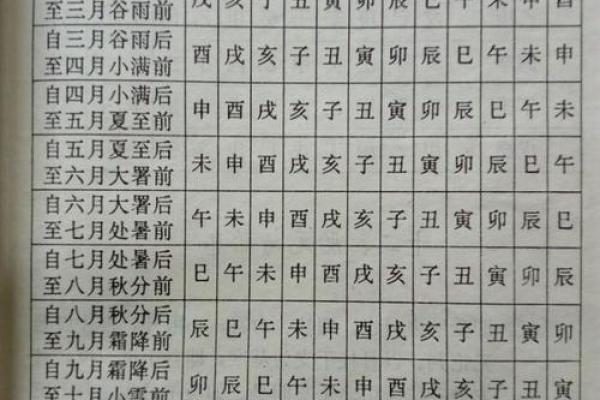 至三月谷雨前 戌 亥 子 丑 寅 卯 辰 巳 午 未 申 酉
自三月谷雨后
至四月小满前 酉 戌 亥 子 丑 寅 卯 辰 巳 午 未 申
自四月小满后
至五月夏至前 申 酉 戌 亥 子 丑 寅 卯 辰 巳 午 未
自五月夏至后
至六月大署前 未 申 酉 戌 亥 子 丑 寅 卯 辰 巳 午
自六月大署后
至七月处暑前 午 未 申 酉 戌 亥 子 丑 寅 卯 辰 巳
自七月处暑后
至八月秋分前 巳 午 未 申 酉 戌 亥 子 丑 寅 卯 辰
自八月秋分后
至九月霜降前 辰 巳 午 未 申 酉 戌 亥 子 丑 寅 卯
自九月霜降后
至十月小雪前 卯 辰 巳 午 未 申 酉 戌 亥 子 丑 寅